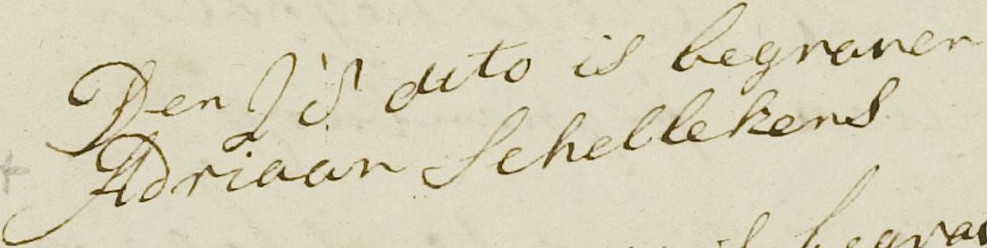 Den dito is begraven
Adriaan Schellekens
is begra